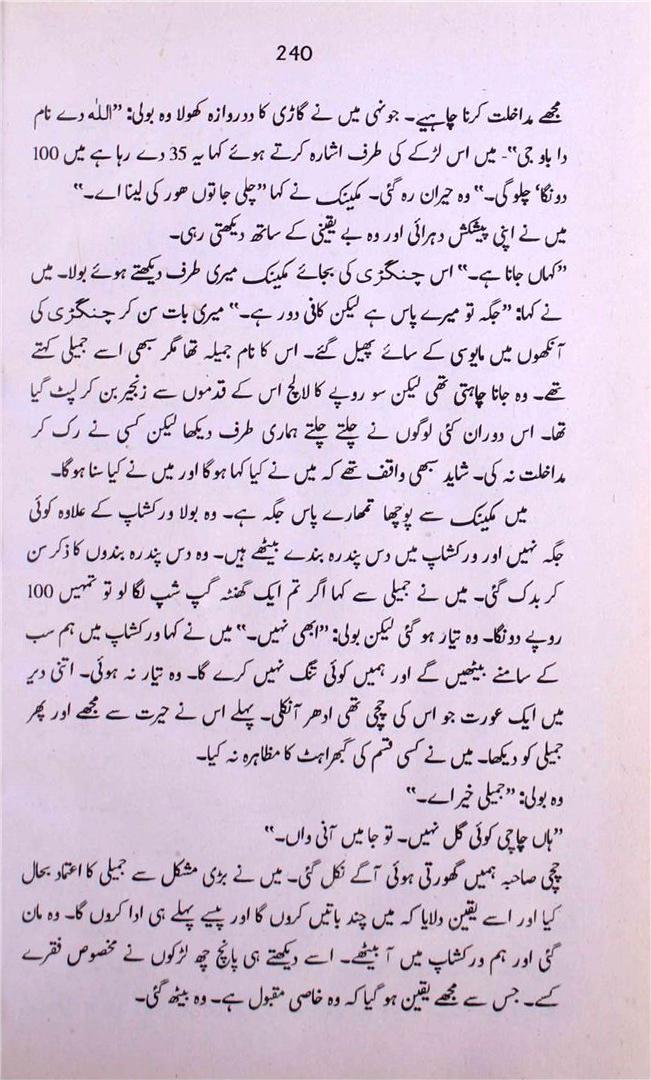 240
مجھے مداخلت کرنا چاہیے۔ جونہی میں نے گاڑی کا ددروازہ کھولا وہ بولی: ”اللہ دے نام
دا باؤ جی“۔ میں اس لڑکے کی طرف اشارہ کرتے ہوئے کہا یہ 35 دے رہا ہے میں 100
دونگا‘ چلو گی۔“ وہ حیران رہ گئی۔ مکینک نے کہا ”چلی جا توں ھور کی لینا اے۔“
میں نے اپنی پیشکش دہرائی اور وہ بے یقینی کے ساتھ دیکھتی رہی۔
”کہاں جانا ہے۔“ اس چنگڑی کی بجائے مکینک میری طرف دیکھتے ہوئے بولا۔ میں
نے کہا: ”جگہ تو میرے پاس ہے لیکن کافی دور ہے۔“ میری بات سن کر چنگڑی کی
آنکھوں میں مایوسی کے سائے پھیل گئے۔ اس کا نام جمیلہ تھا مگر سبھی اسے جمیلی کہتے
تھے۔ وہ جانا چاہتی تھی لیکن سو روپے کا لالچ اس کے قدموں سے زنجیر بن کر لپٹ گیا
تھا۔ اس دوران کئی لوگوں نے چلتے چلتے ہماری طرف دیکھا لیکن کسی نے رک کر
مداخلت نہ کی۔ شاید سبھی واقف تھے کہ میں نے کیا کہا ہوگا اور میں نے کیا سنا ہوگا۔
میں مکینک سے پوچھا تمھارے پاس جگہ ہے۔ وہ بولا ورکشاپ کے علاوہ کوئی
جگہ نہیں اور ورکشاپ میں دس پندرہ بندے بیٹھے ہیں۔ وہ دس پندرہ بندوں کا ذکر سن
کر بدک گئی۔ میں نے جمیلی سے کہا اگر تم ایک گھنٹہ گپ شپ لگا لو تو تمہیں 100
روپے دونگا۔ وہ تیار ہو گئی لیکن بولی: ”ابھی نہیں۔“ میں نے کہا ورکشاپ میں ہم سب
کے سامنے بیٹھیں گے اور ہمیں کوئی تنگ نہیں کرے گا۔ وہ تیار نہ ہوئی۔ اتنی دیر
میں ایک عورت جو اس کی چچی تھی ادھر آنکلی۔ پہلے اس نے حیرت سے مجھے اور پھر
جمیلی کو دیکھا۔ میں نے کسی قسم کی گھبراہٹ کا مظاہرہ نہ کیا۔
وہ بولی: ”جمیلی خیر اے۔“
”ہاں چاچی کوئی گل نہیں۔ تو جا میں آنی واں۔“
چچی صاحبہ ہمیں گھورتی ہوئی آگے نکل گئی۔ میں نے بڑی مشکل سے جمیلی کا اعتماد بحال
کیا اور اسے یقین دلایا کہ میں چند باتیں کروں گا اور پیسے پہلے ہی ادا کروں گا۔ وہ مان
گئی اور ہم ورکشاپ میں آ بیٹھے۔ اسے دیکھتے ہی پانچ چھ لڑکوں نے مخصوص فقرے
کسے۔ جس سے مجھے یقین ہو گیا کہ وہ خاصی مقبول ہے۔ وہ بیٹھ گئی۔